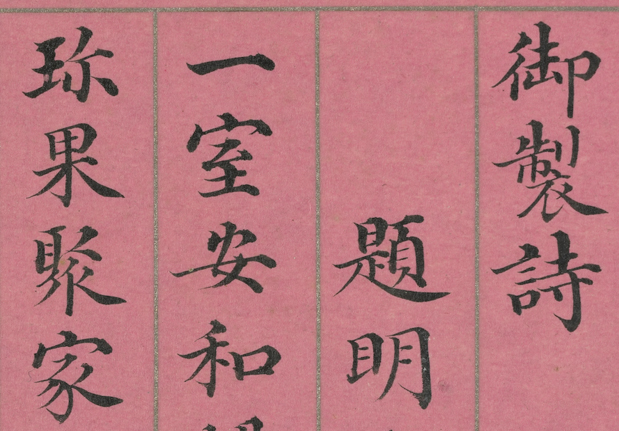 御製詩
題明
一室安和
珎果聚家